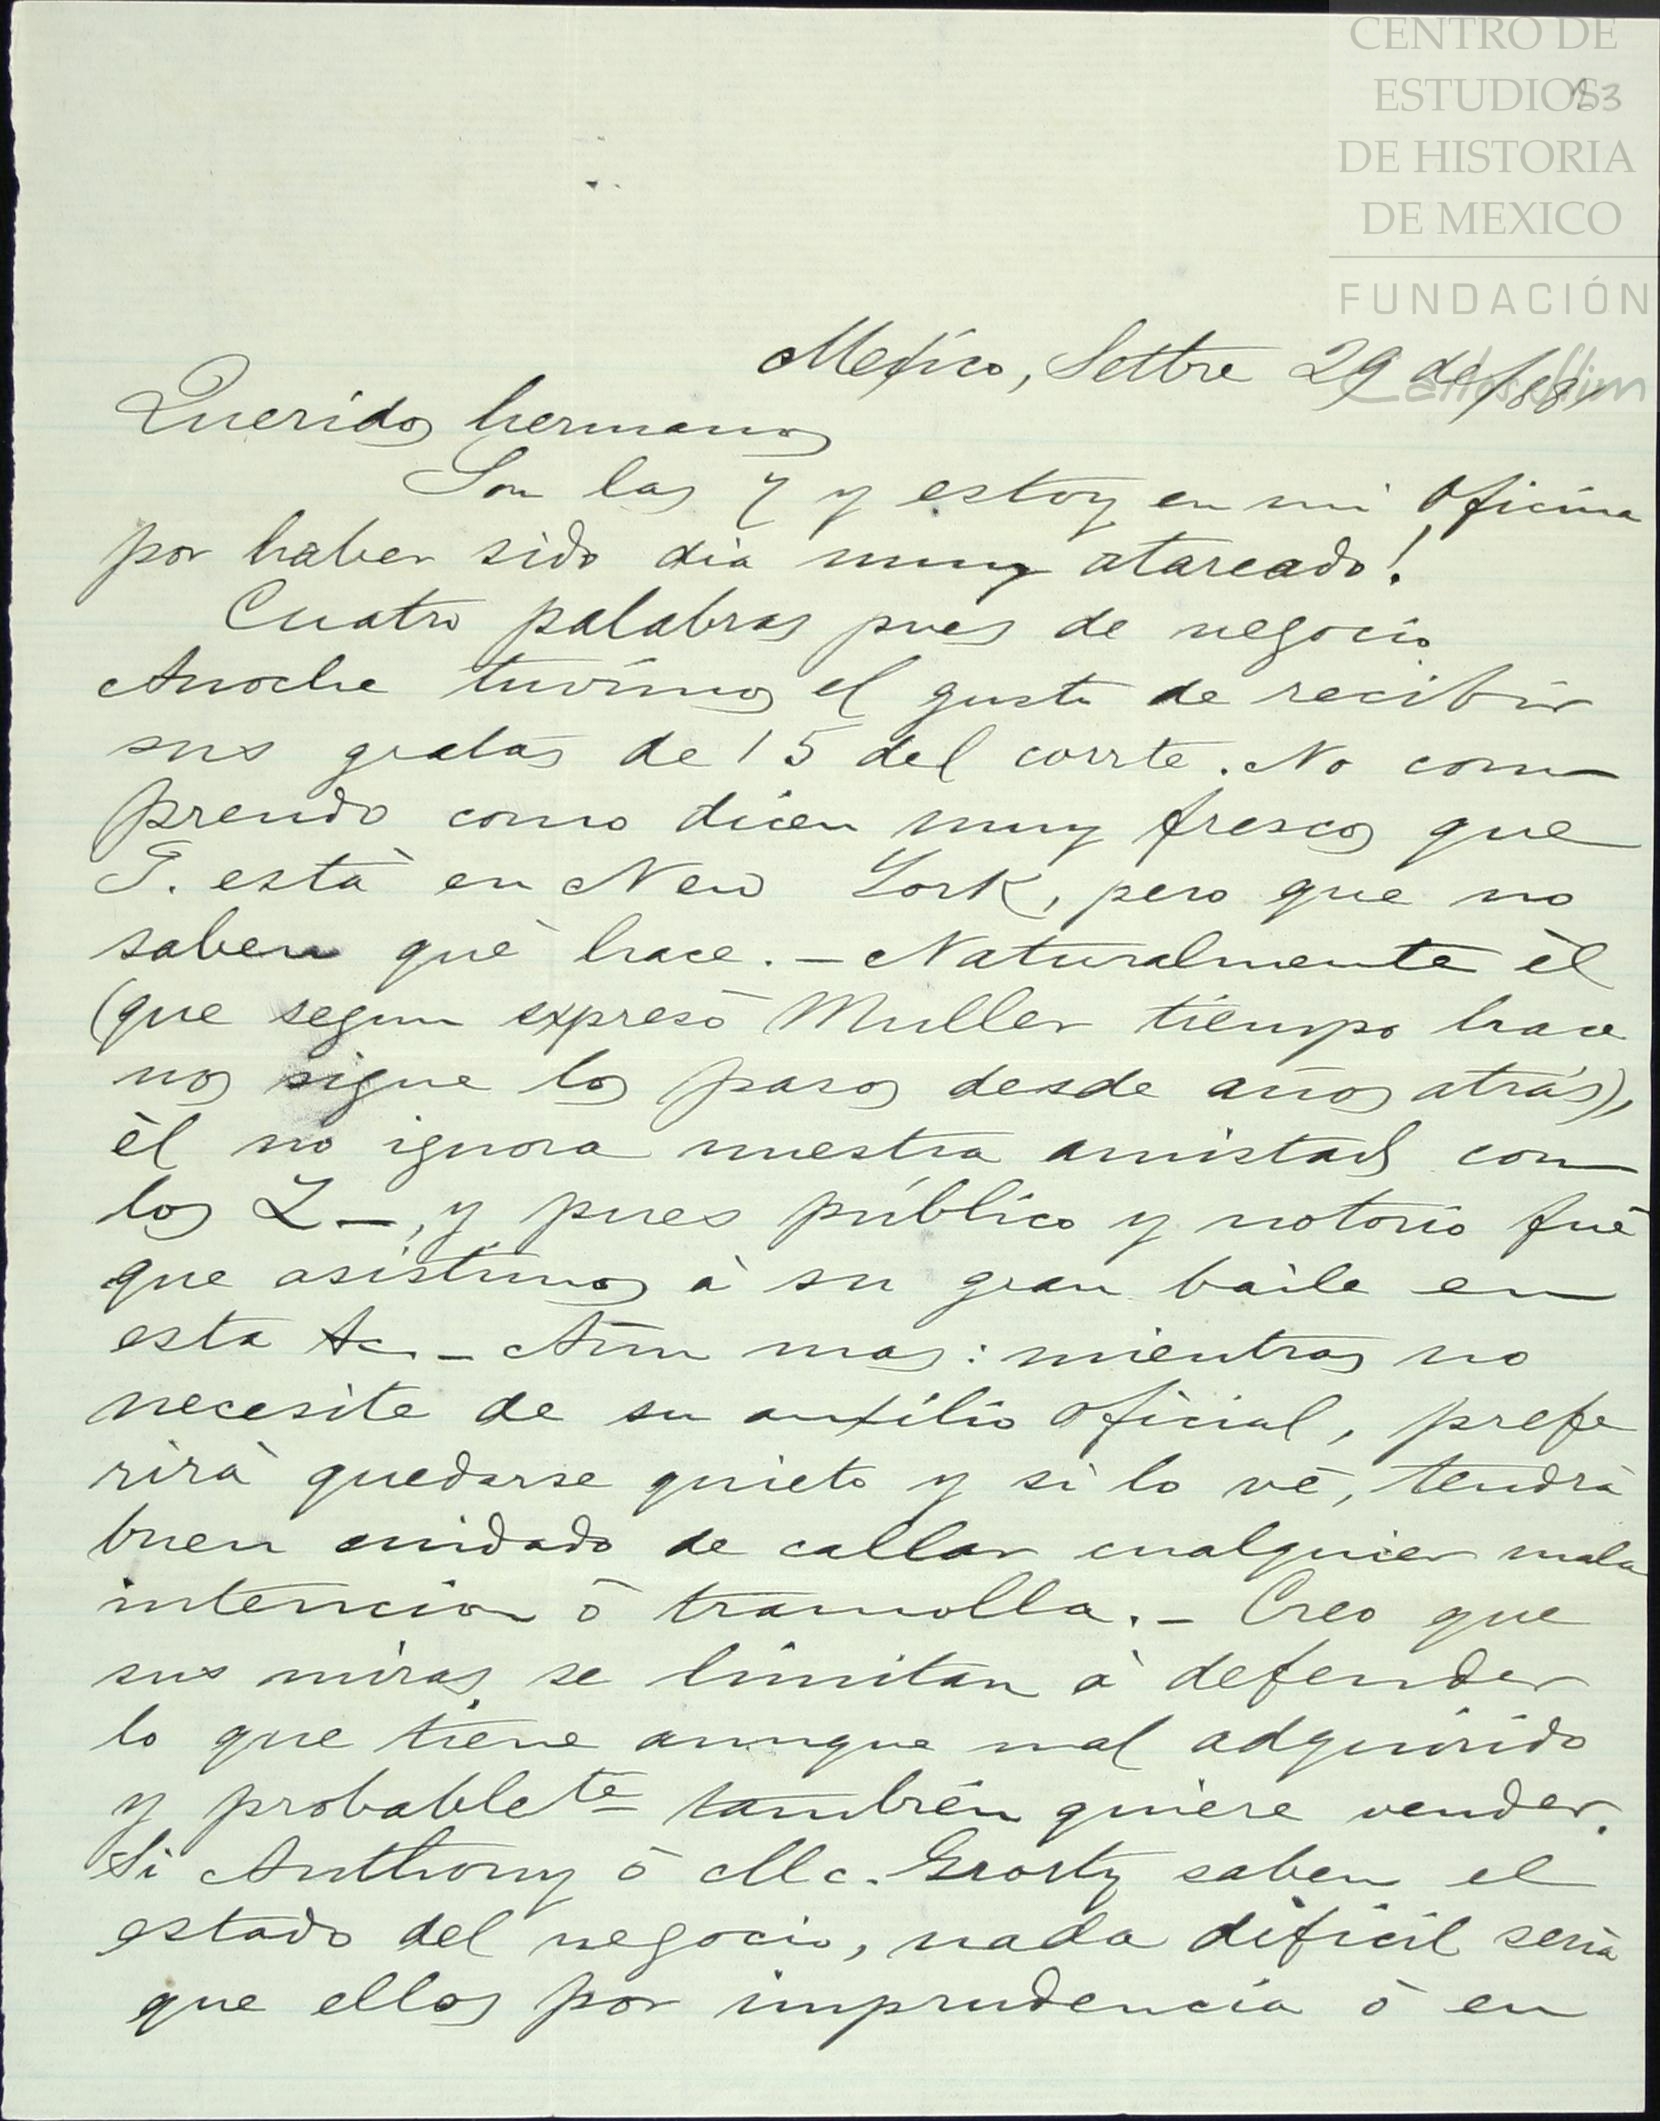 CENTRO DE
ESTUDIOS
DE HISTORIA
DE MEXICO
FUNDACIÓN
Carlos Slim
Mejico, Settre 29 de
Queridos hermanos
Son las 7 y estoy en mi oficina
por haber sido dia muy atareado!
Cuatro palabras pues de negocio
Anoche tuvimos el gusto de recibir
sus gratas de 15 del corrte. No com-
prendo como dicen muy frescos que
G. está en New York, pero que no
saben qué hace. – Naturalmente él
(que segun expresó Muller tiempo hace
nos sigue los pasos desde años atrás),
él no ignora nuestra amistad con
los Z—, y pues público y notorio fué
que asistimos à su gran baile en
esta &c. – Aún mas: mientras no
necesite de su auxilio oficial, prefe
rirà quedarse quieto y si lo vé, tendrà
buen cuidado de callar cualquier mala
intencion ó tramolla. – Creo que
sus miras se limitan à defender
lo que tiene aunque mal adquirido
y probablete también quiere vender.
Si Anthony ó Mc. saben el
estado del negocio, nada dificil seria
que ellos por imprudencia ó en